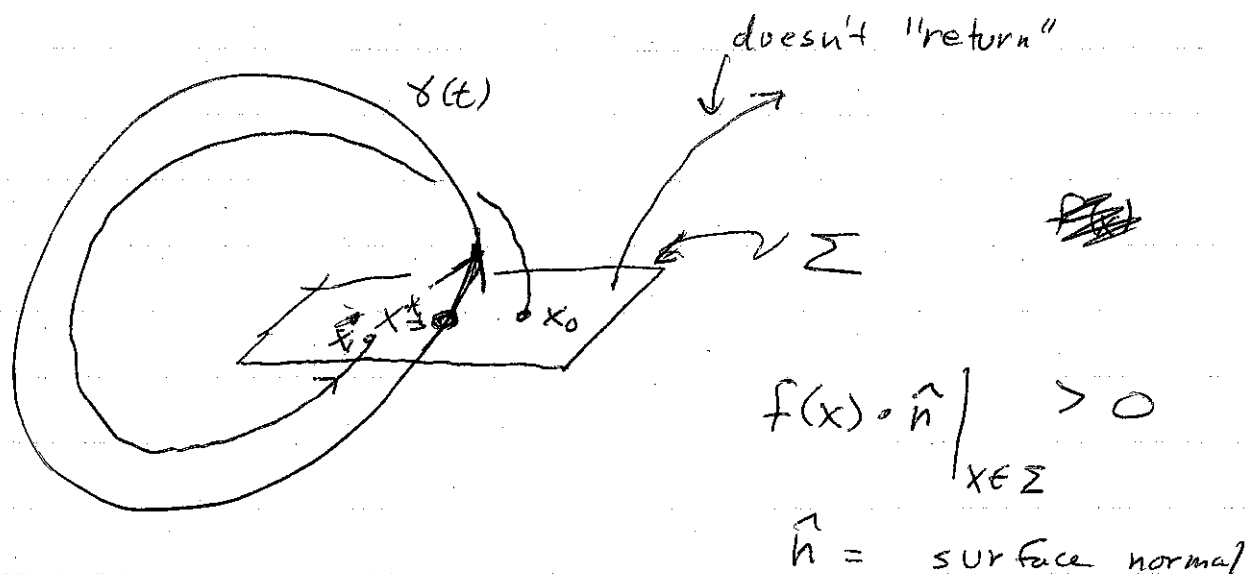 doesn't "return"
γ(t)
Σ
x* x₀
f(x) · n̂ | > 0
x ∈ Σ
n̂ = surface normal